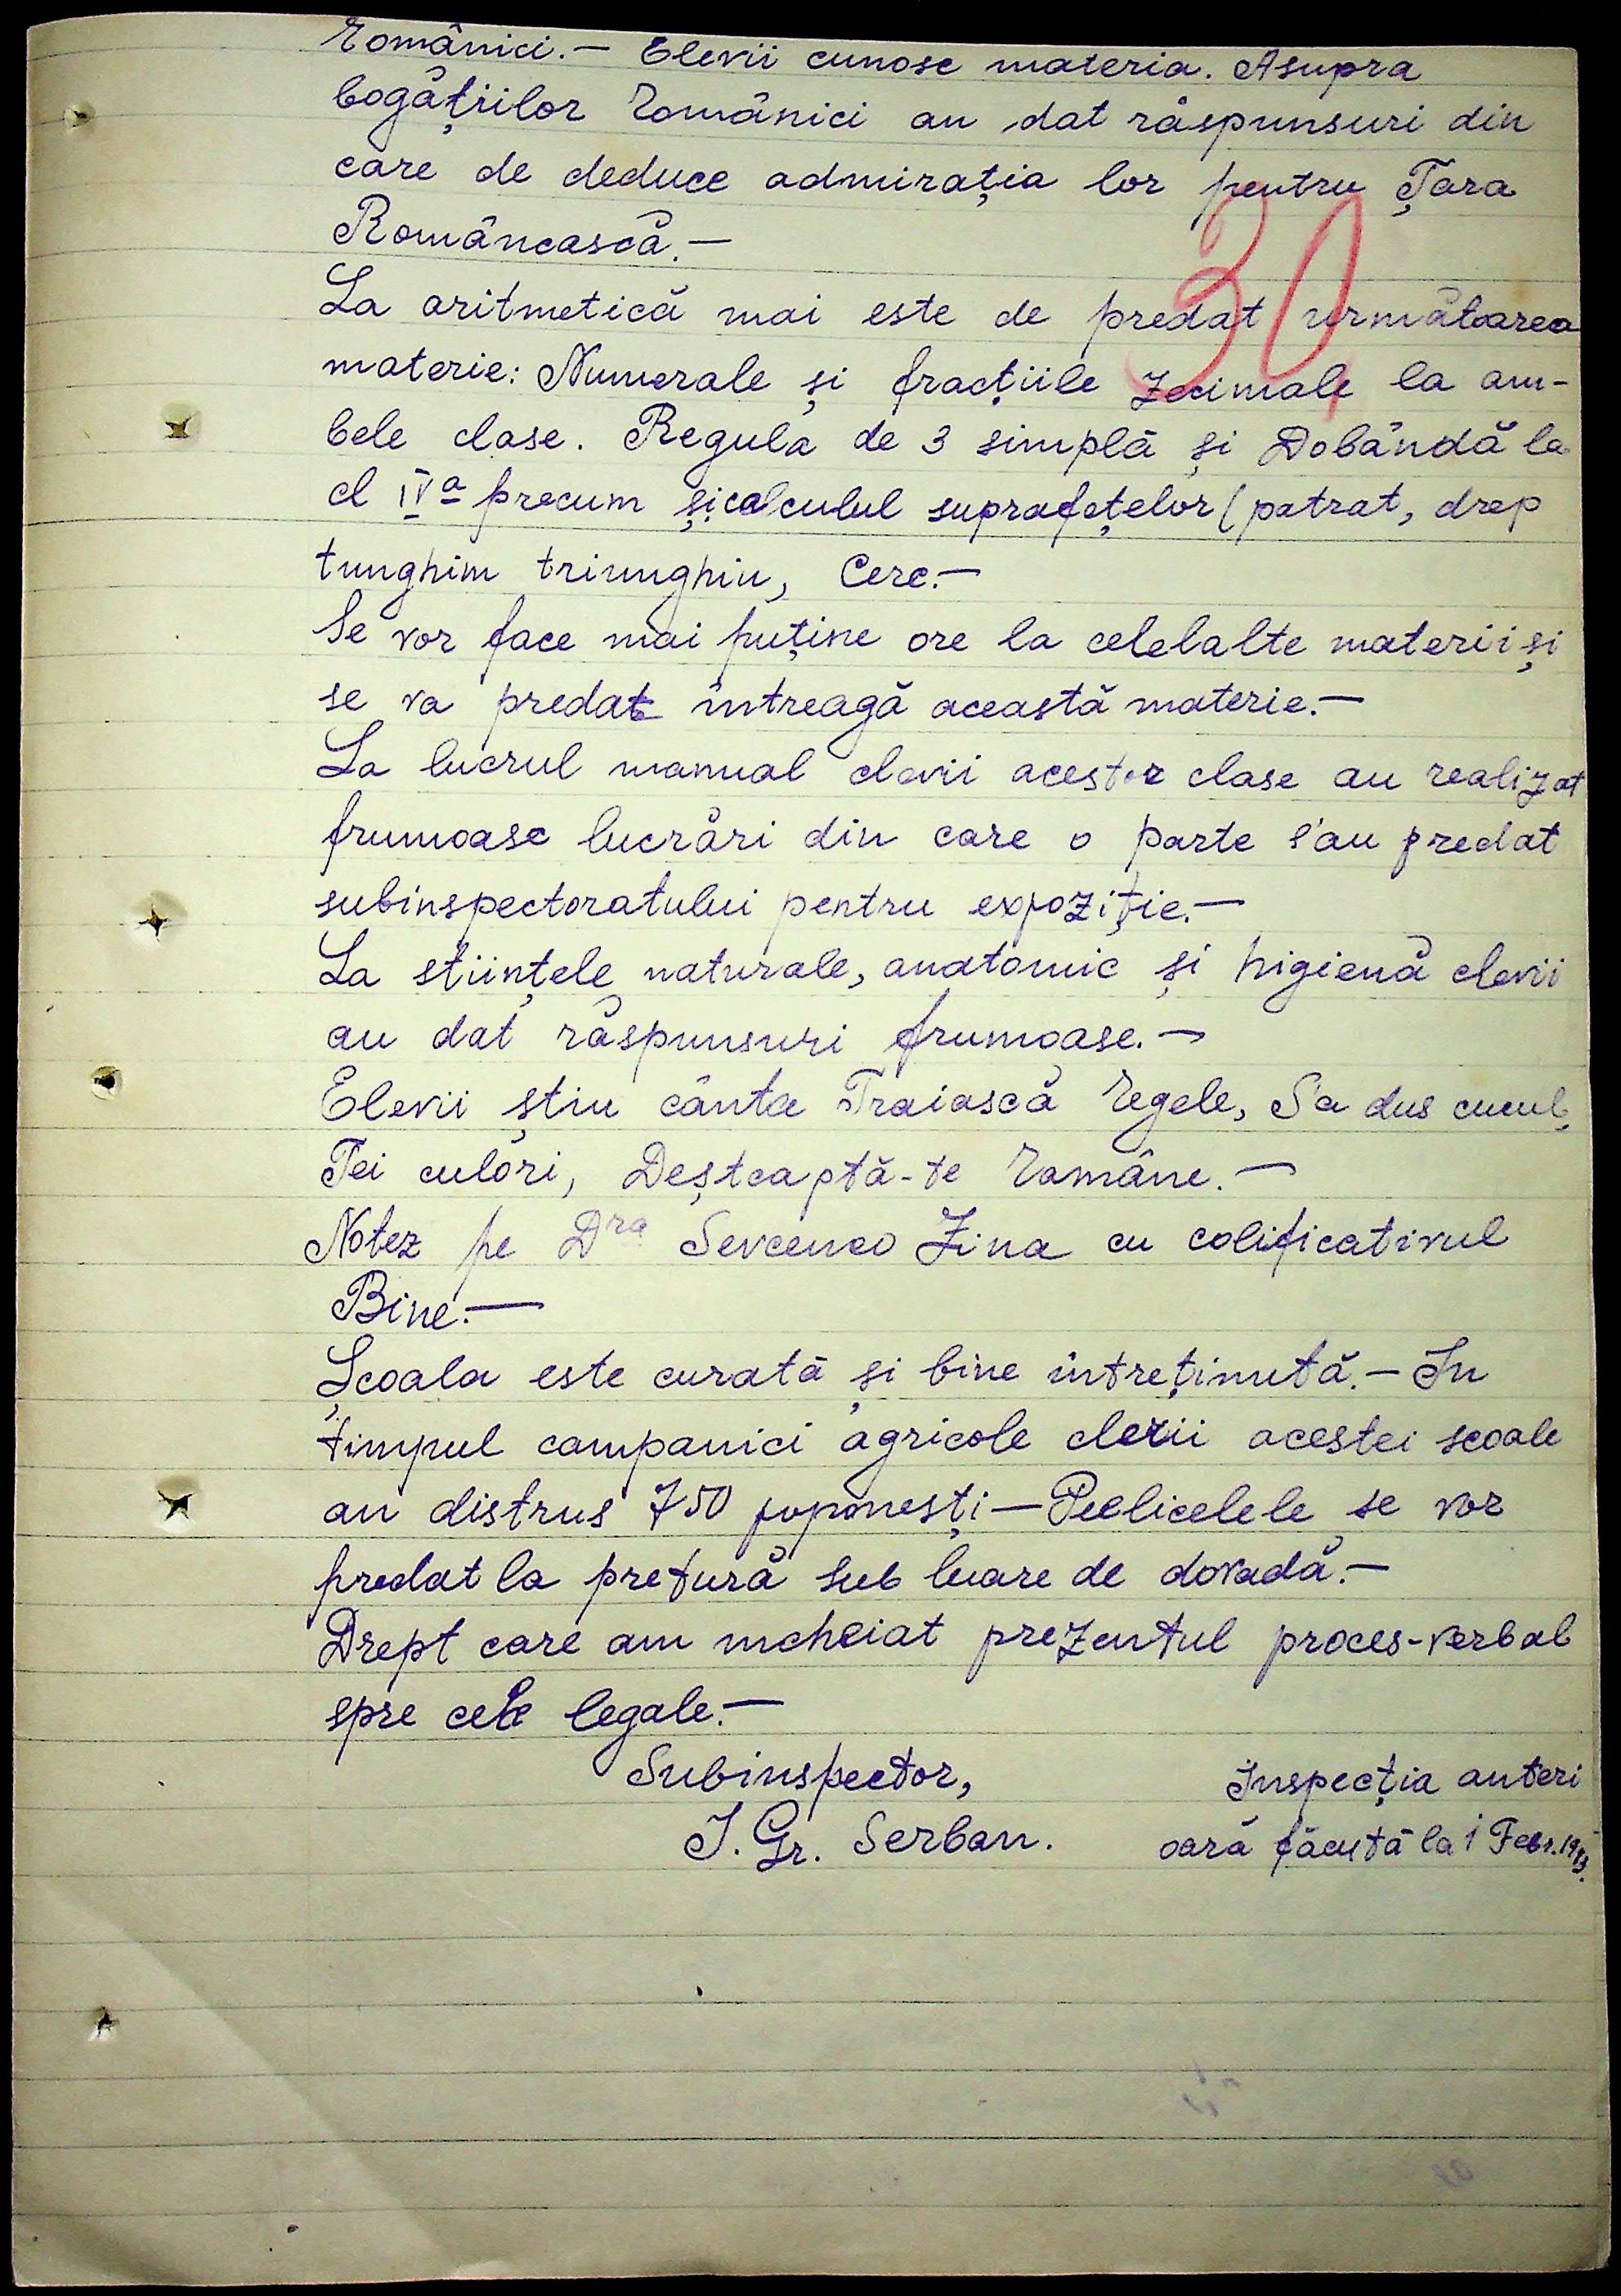 României.— Elevii cunosc materia. Asupra
bogățiilor României au dat răspunsuri din
care de deduce admirația lor pentru Țara
Românească.—
30
La aritmetică mai este de predat următoarea
materie: Numerale și fracțiile zecimale la am-
bele clase. Regula de 3 simplă și Dobândă la
cl IVa precum și calculul suprafețelor (patrat, drep
tunghim triunghiu, Cerc.—
Se vor face mai puține ore la celelalte materii și
se va predat întreagă această materie.—
La lucrul manual elevii acestor clase au realizat
frumoase lucrări din care o parte s'au predat
subinspectoratului pentru expoziție.—
La stiințele naturale, anatomie și higienă elevii
au dat răspunsuri frumoase.—
Elevii știu cânta Traiască Regele, S'a dus cucul,
Tei culori, Deșteaptă-te Române.—
Notez pe Dra Sevcenco Zina cu calificativul
Bine.—
Școala este curată și bine întreținută.— In
timpul campaniei agricole elevii acestei scoale
au distrus 750 poponești — Peelicelele se vor
predat la pretură sub luare de dovadă.—
Drept care am incheiat prezentul proces-verbal
spre cele legale.—
Subinspector,
I. Gr. Serban.
Inspecția anteri
oară făcută la 1 Febr. 1943.